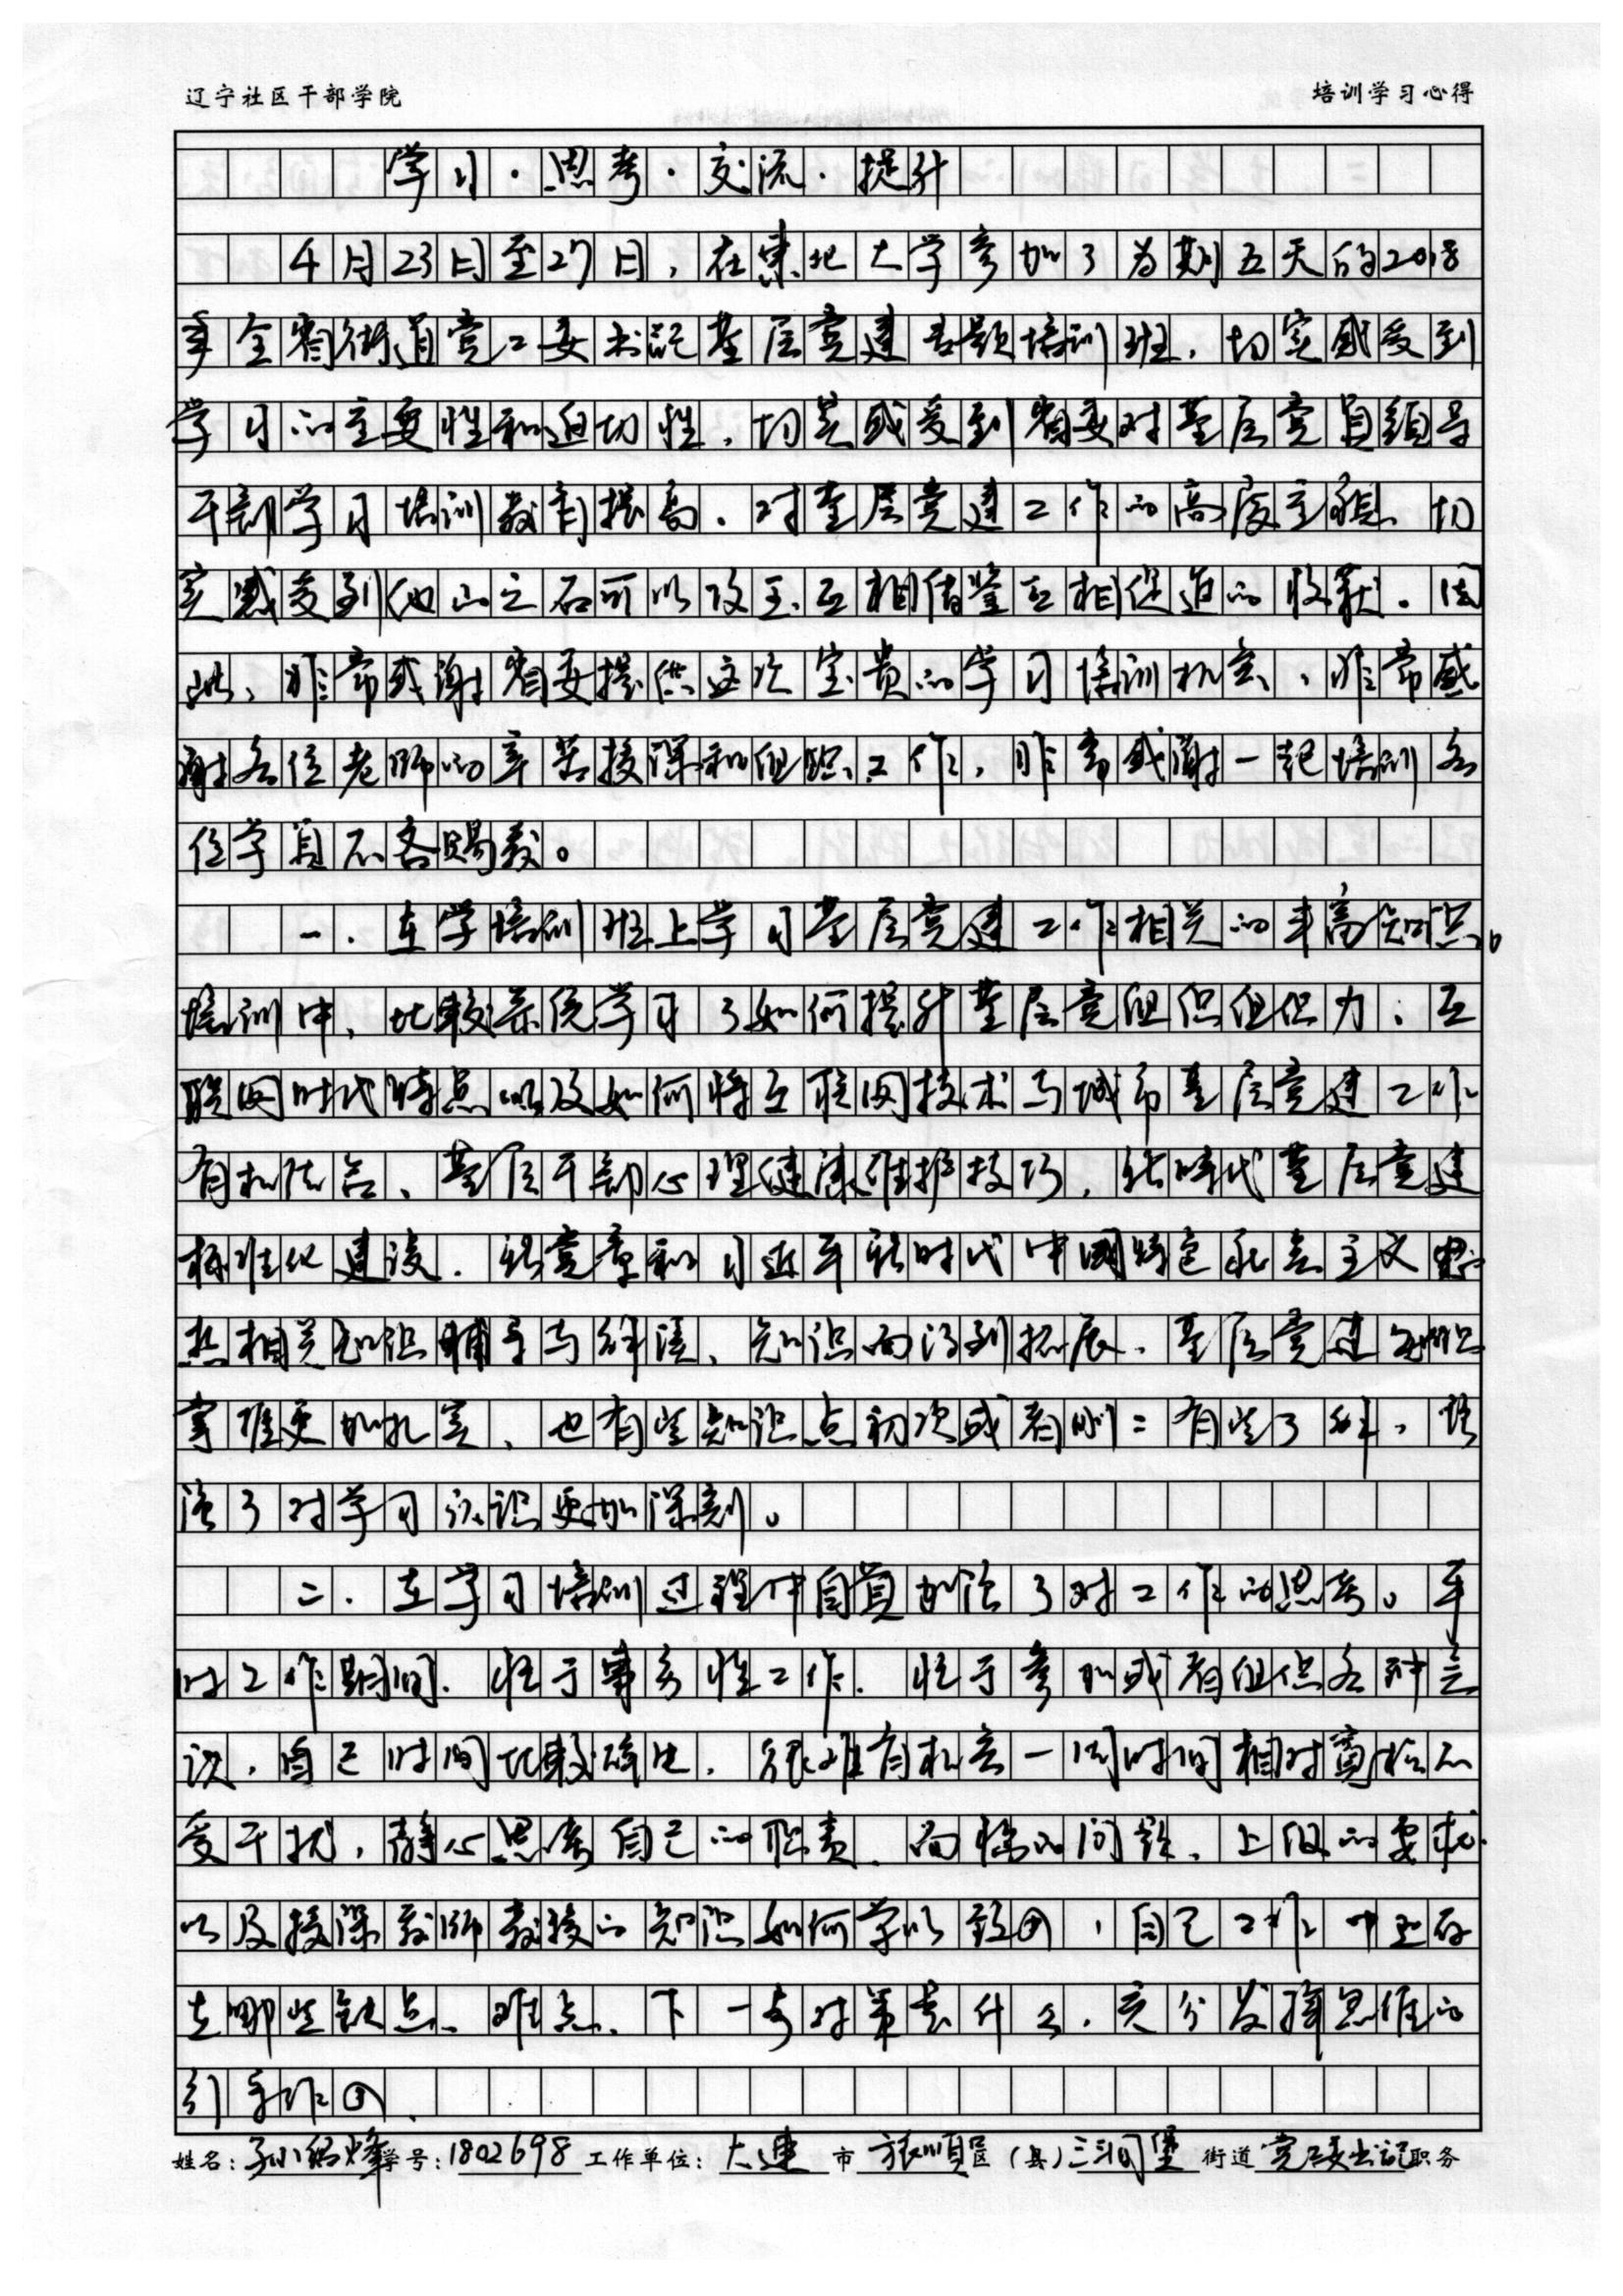 辽宁社区干部学院 培训学习心得
学习·思考·交流·提升
4月23日至27日,在东北大学参加了为期五天的2018
年全省街道党工委书记基层党建专题培训班,切实感受到
学习的重要性和迫切性,切实感受到省委对基层党员领导
干部学习培训教育提高、对基层党建工作的高度重视,切
实感受到他山之石可以攻玉、互相借鉴互相促进的收获。因
此,非常感谢省委提供这次宝贵的学习培训机会,非常感
谢各位老师的辛苦授课和组织工作,非常感谢一起培训各
位学员不吝赐教。
一、在学培训班上学习基层党建工作相关的丰富知识。
培训中,比较系统学习了如何提升基层党组织组织力、互
联网时代特点以及如何将互联网技术与城市基层党建工作
有机结合、基层干部心理健康维护技巧,新时代基层党建
标准化建设、新党章和习近平新时代中国特色社会主义思
想相关知识辅导与解读,知识面得到拓展,基层党建知识
掌握更加扎实,也有些知识点初次或者刚刚有些了解,增
强了对学习认识更加深刻。
二、在学习培训过程中自觉加强了对工作的思考。平
时工作期间,忙于事务性工作,忙于参加或者组织各种会
议,自己时间比较碎片,很难有机会一周时间相对宽松不
受干扰,静心思考自己的职责、面临的问题、上级的要求
以及授课教师教授的知识如何学以致用,自己工作中还存
在哪些缺点、难点、下一步对策是什么,充分发挥思维的
引导作用。
姓名: 学号:1802698 工作单位:大连市旅顺区(县)三涧堡街道党工委书记职务